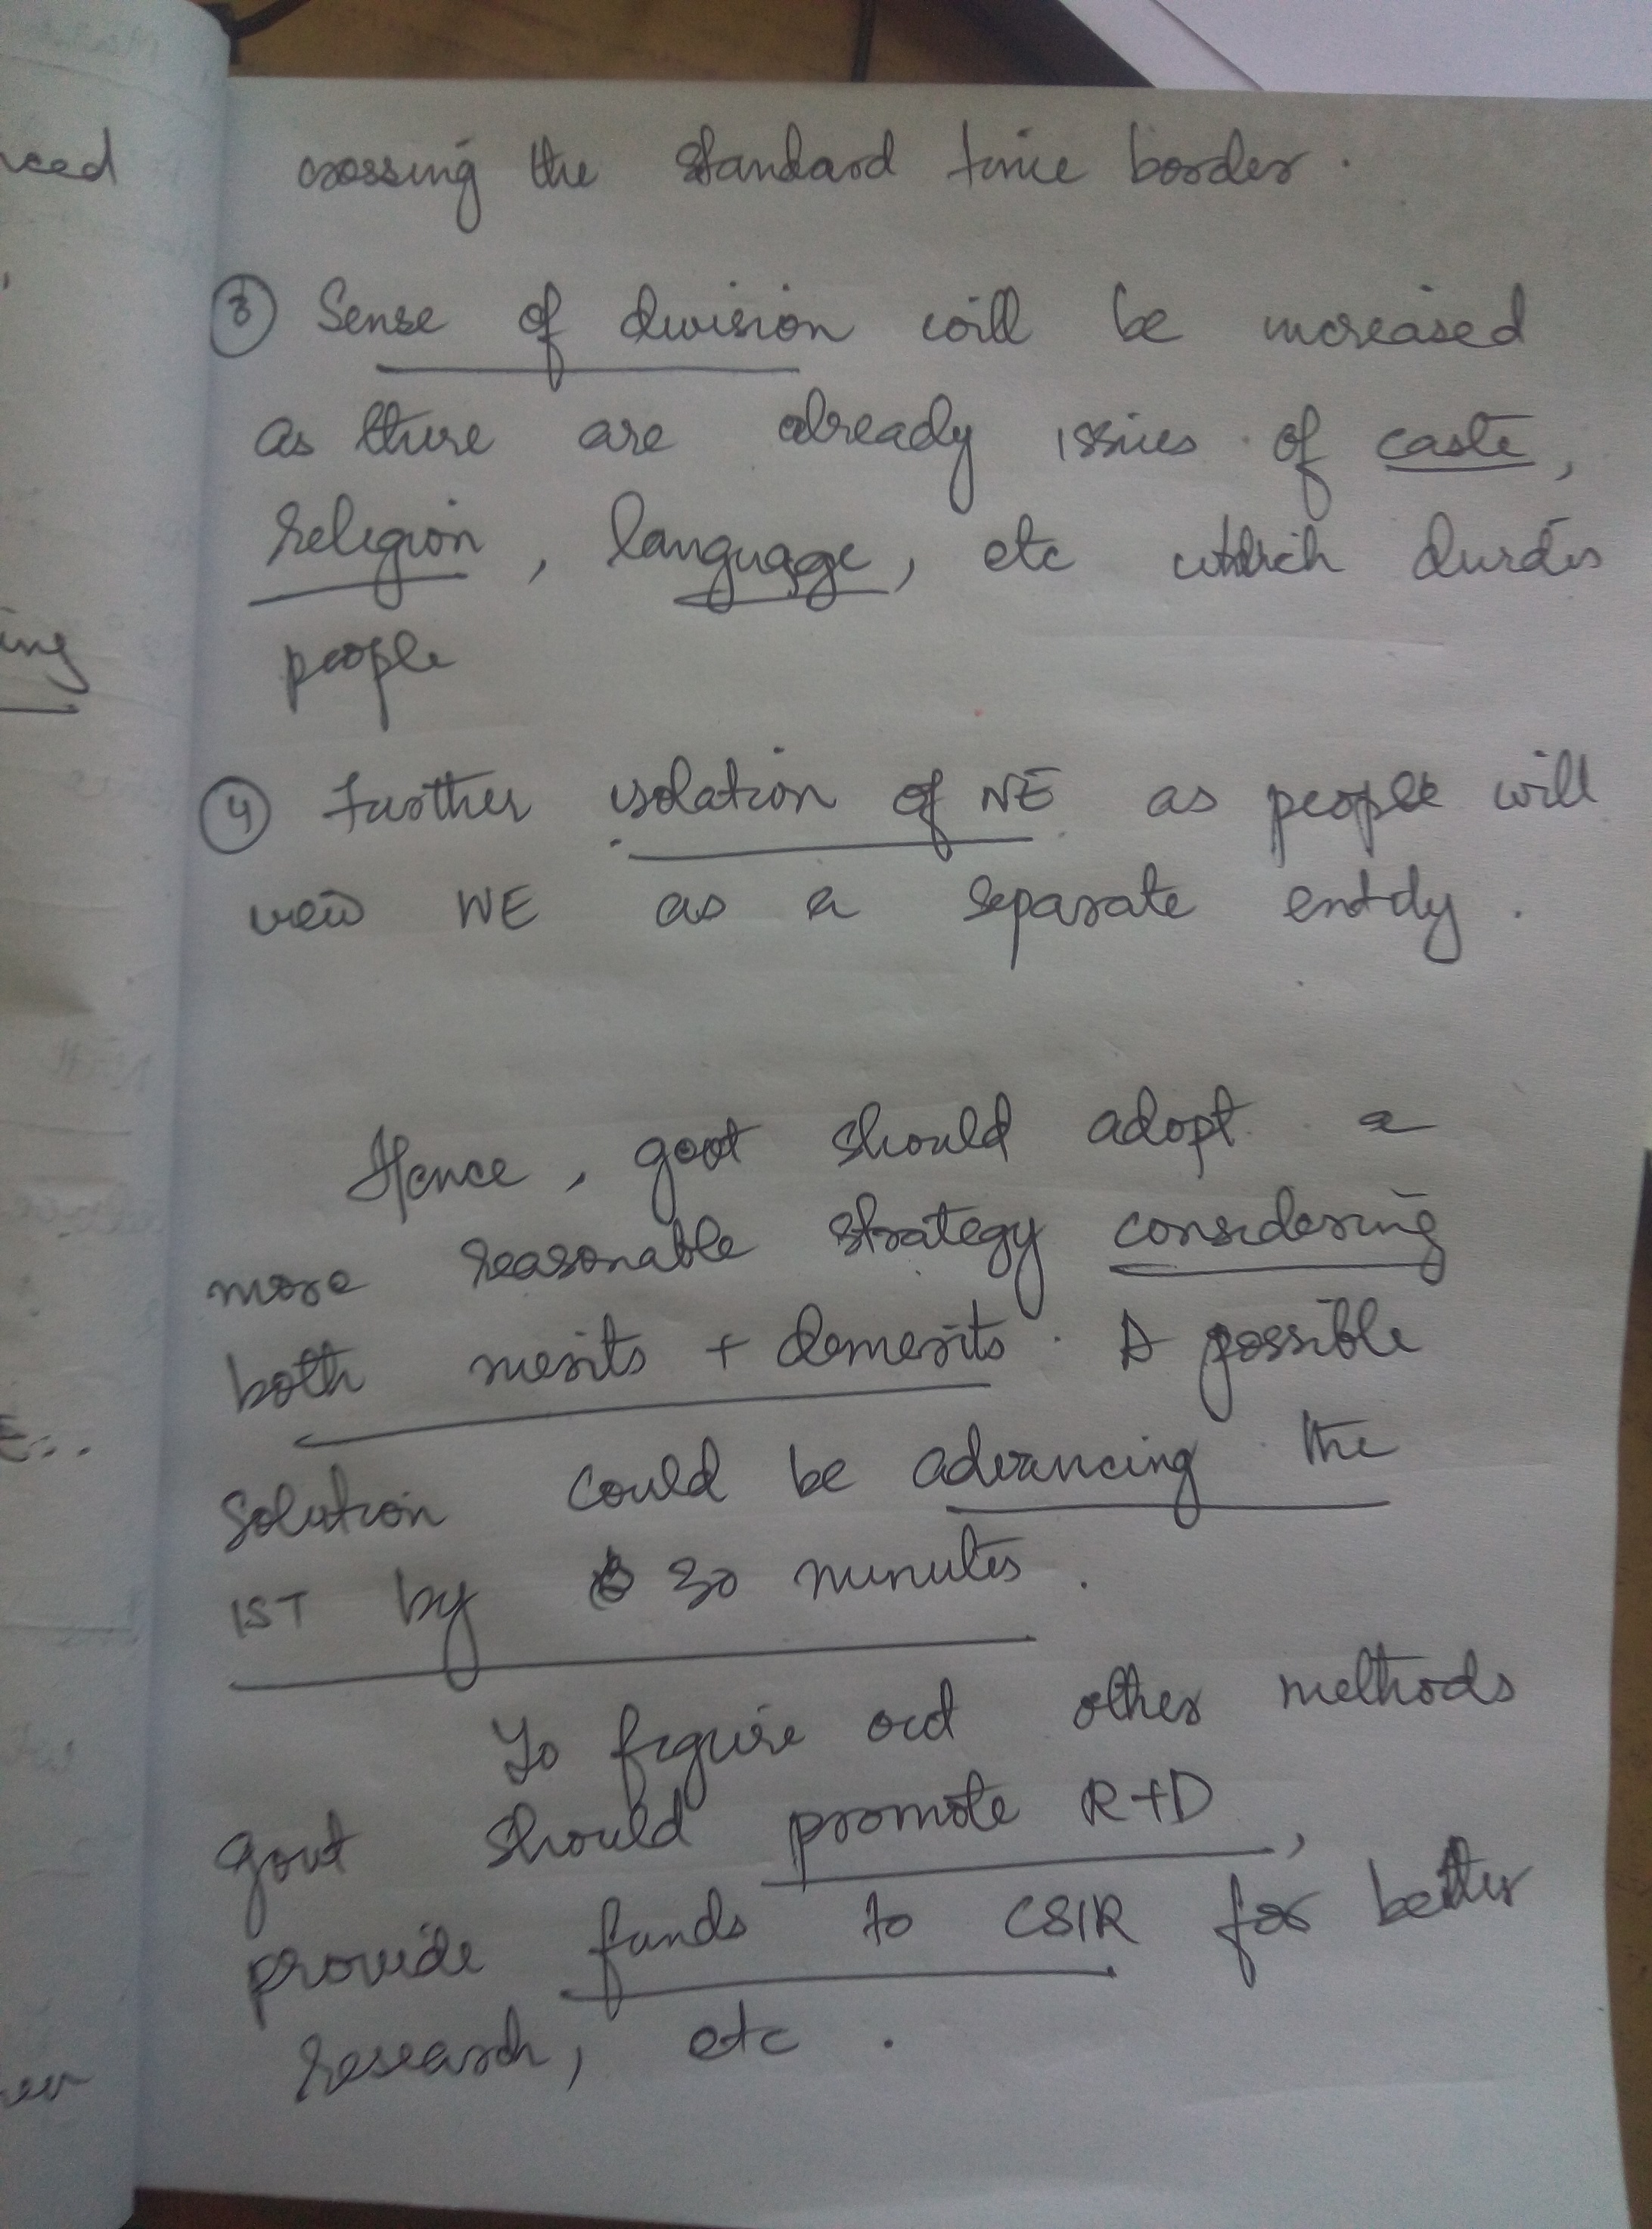 crossing the standard time border.
③ Sense of division will be increased
as there are already issues of caste,
religion, language, etc which divides
people
④ Further isolation of NE as people will
view NE as a separate entity.
Hence, govt should adopt a
more reasonable strategy considering
both merits + demerits. A possible
solution could be advancing the
IST by 30 minutes.
To figure out other methods
govt should promote R+D,
provide funds to CSIR for better
research, etc.